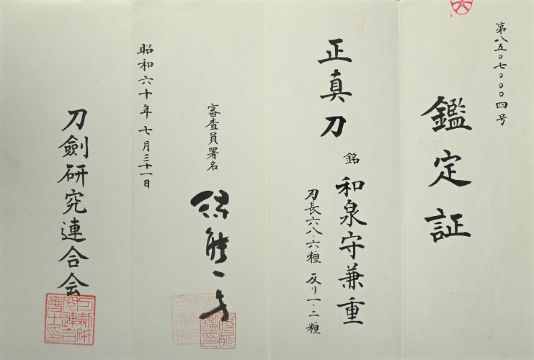 第八五〇七〇〇〇四号
鑑定証
正真刀
銘 和泉守兼重
刃長六八・六糎 反り一・二糎
審査員署名
昭和六十年七月三十一日
刀劍研究連合会